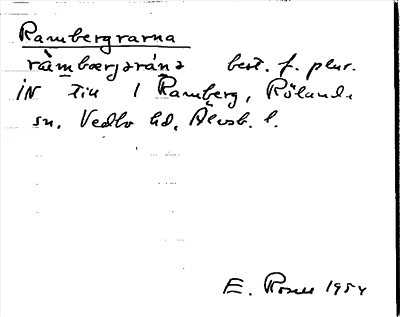 Rambergrarna
ràmbærjəránə best. f. plur.
iN till 1 Ramberg, Rölanda
sn. Vedbo hd, Älvsb. l.
E. Rosell 1954